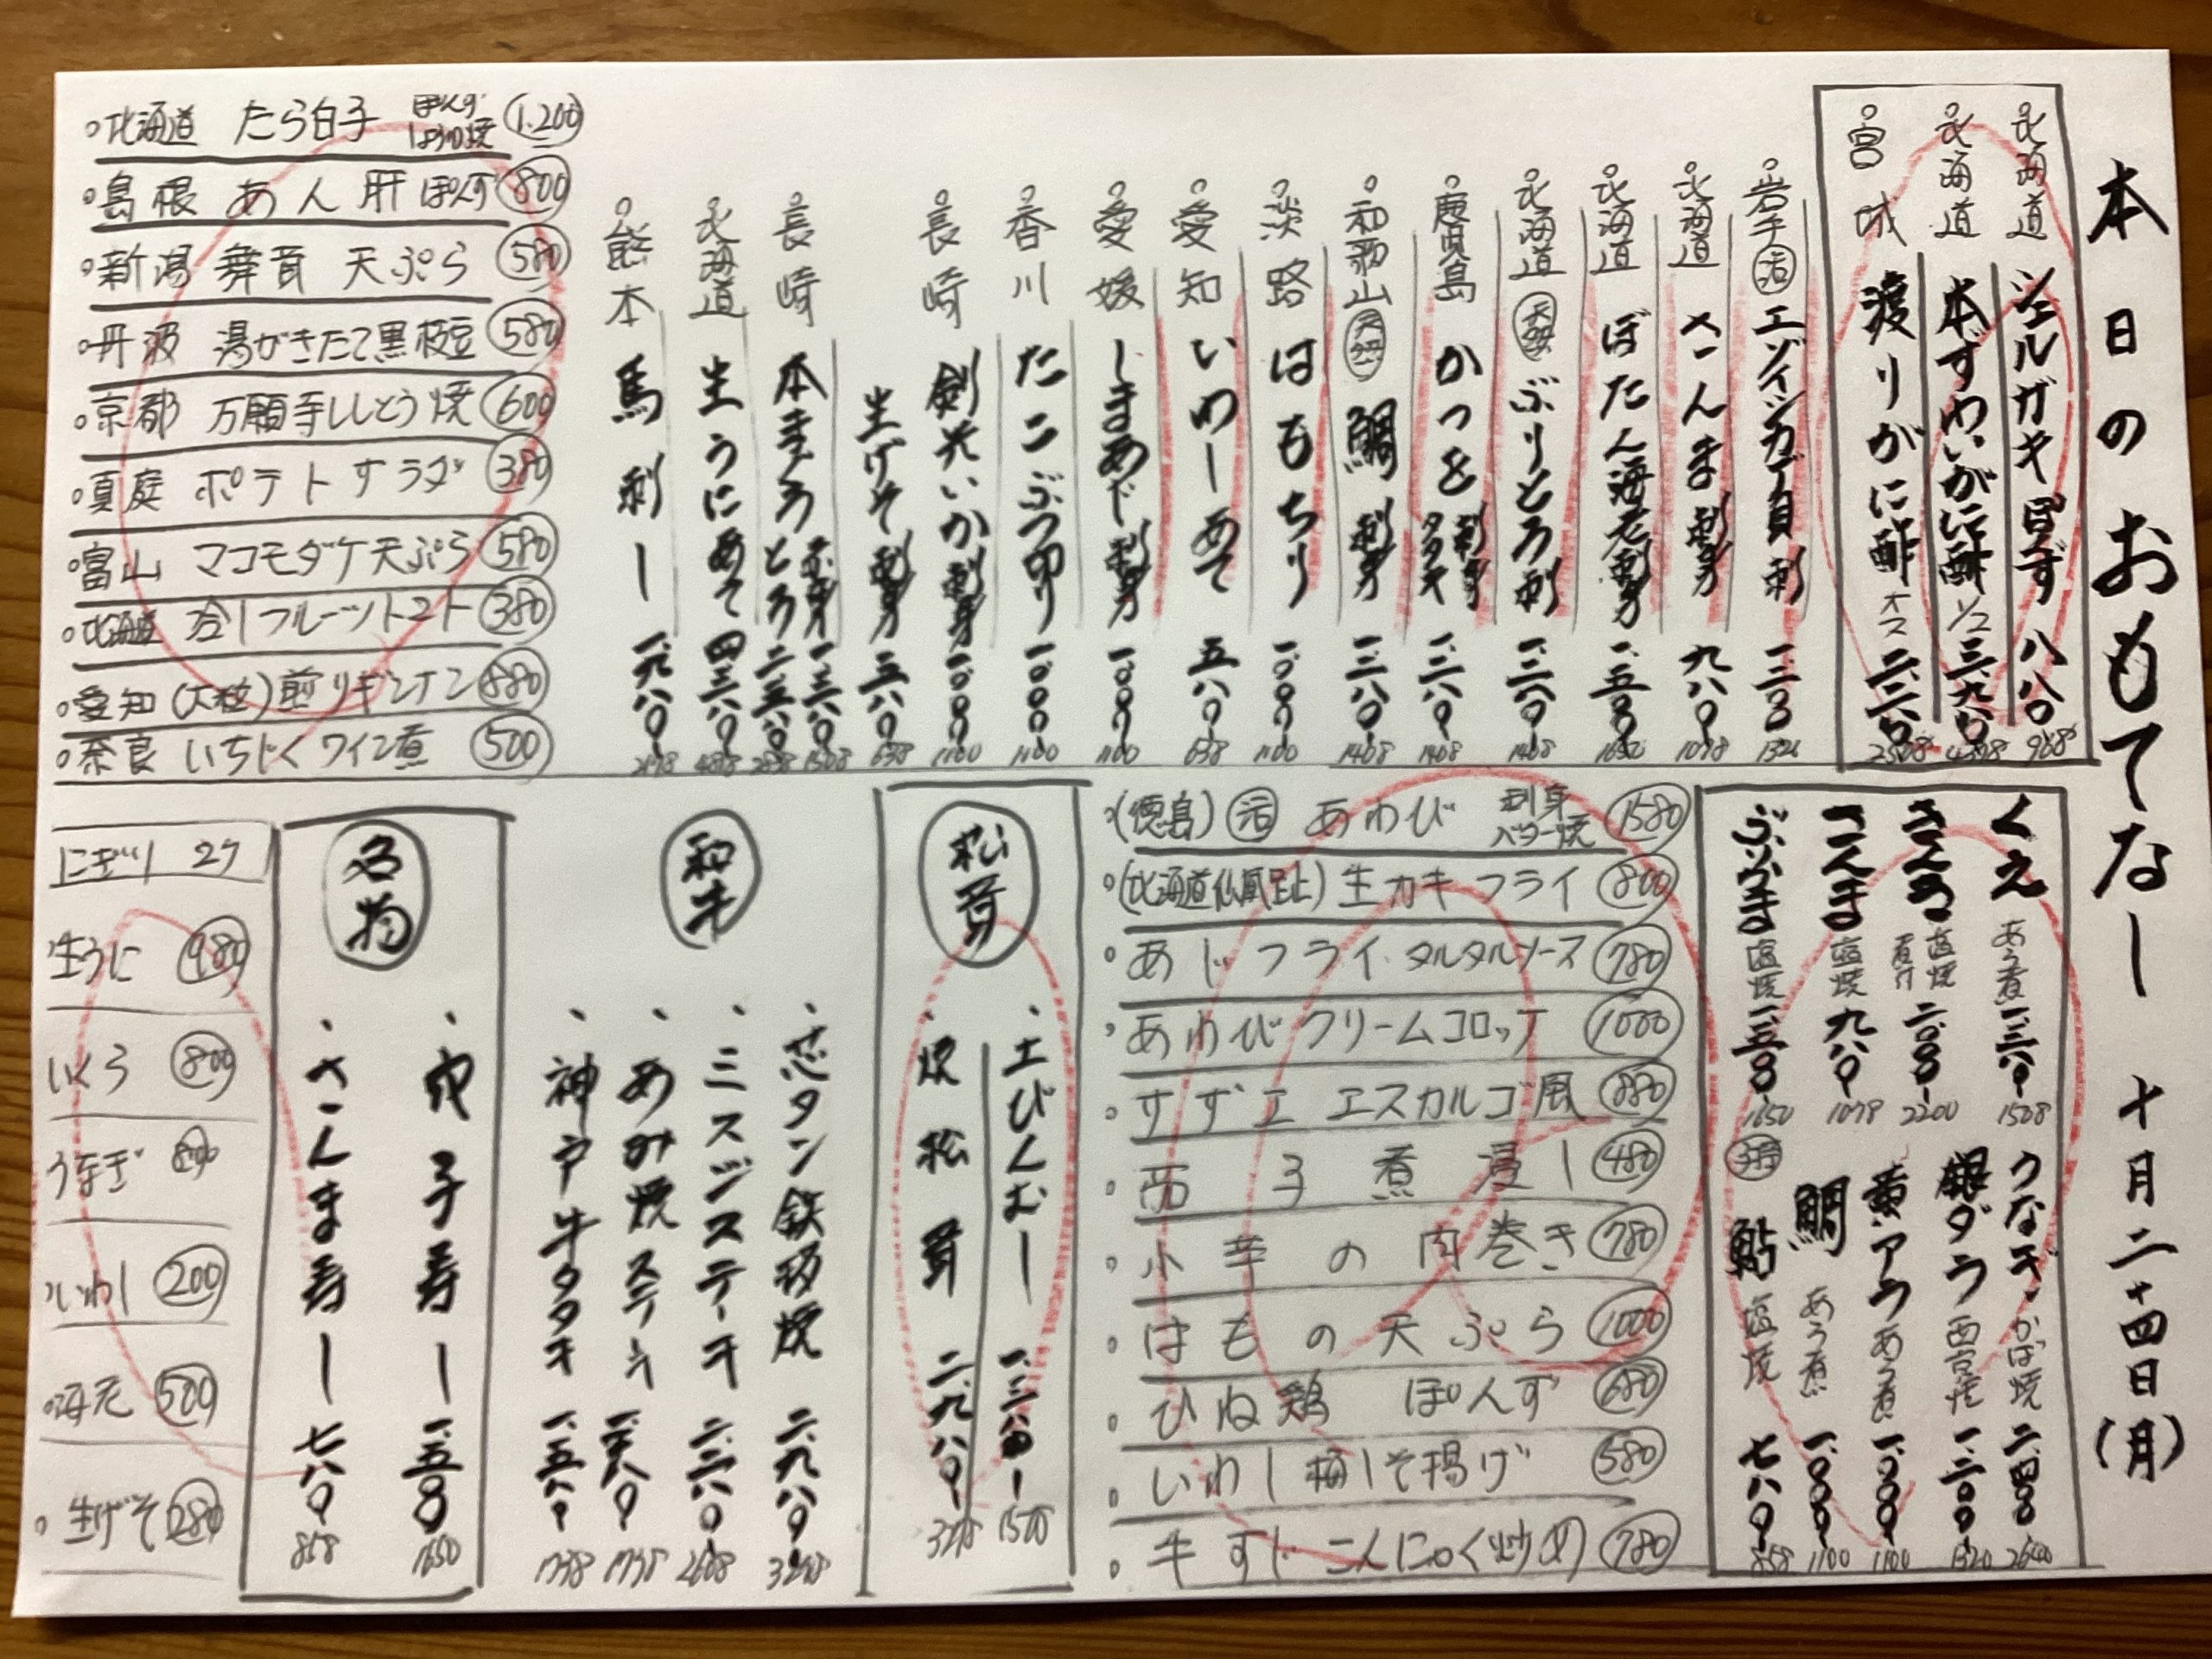 本日のおもてなし 十月二十四日(月)
北海道 シェルガキ ぽんず 八八〇 968
北海道 本ずわいがに酢 1/2 三、九八〇
宮城 渡りがに酢 オス 二、二八〇 2508
岩手 活 エゾイシカゲ貝刺 一、二〇〇
北海道 さんま刺身 九八〇 1078
北海道 ぼたん海老刺身 一、五〇〇 1650
北海道 天然 ぶりとろ刺 一、二八〇 1408
鹿児島 かつを 刺身 タタキ 一、二八〇 1408
和歌山 天然 鯛刺身 一、二八〇 1408
淡路 はもちり 一、〇〇〇 1100
愛知 いわしあて 五八〇 638
愛媛 しまあじ刺身 一、〇〇〇 1100
香川 たこぶつ切り 一、〇〇〇 1100
長崎 剣先いか刺身 一、〇〇〇 1100
生げそ刺身 五八〇 638
長崎 本まぐろ 赤身 一、三八〇 とろ 二、五八〇
北海道 生うにあて 四、三八〇
熊本 馬刺し 一、九八〇
北海道 たら白子 ぽんず ほうろく焼 1.200
島根 あん肝 ぽんず 800
新潟 舞茸 天ぷら 580
丹波 湯がきたて黒枝豆 580
京都 万願寺ししとう焼 600
真庭 ポテトサラダ 380
富山 マコモダケ天ぷら 580
北海道 冷しフルーツトマト 380
愛知(大粒)煎りギンナン 880
奈良 いちじくワイン煮 500
くえ あら煮 一、三八〇
きんき 塩焼 煮付 二、〇〇〇 2200
さんま 塩焼 九八〇 1078
ぶりかま 塩焼 一、五〇〇 1650
うなぎ かば焼 二、四〇〇 2640
銀ダラ 西京焼 一、二〇〇 1320
黄アラ あら煮 一、〇〇〇 1100
鯛 あら煮 一、〇〇〇 1100
鮎 塩焼 七八〇 858
(徳島) 活 あわび 刺身 バター焼 1580
(北海道仙鳳趾)生カキフライ 800
あじフライ・タルタルソース 780
あわびクリームコロッケ 1000
さざエ エスカルゴ風 880
茄子煮浸し 480
小芋の肉巻き 780
はもの天ぷら 1000
ひね鶏 ぽんず 680
いわし梅しそ揚げ 580
牛すじこんにゃく炒め 780
松茸
、土びんむし 一、三八〇
、焼松茸 二、九八〇 3278
和牛
、芯タン鉄板焼 二、九八〇 3278
、ミスジステーキ 二、二八〇
、あみ焼ステーキ
、神戸牛タタキ 一、五八〇 1738
名物
、穴子寿し 一、五〇〇 1650
、さんま寿し 七八〇 858
にぎり 2ケ
生うに 980
いくら 800
うなぎ 800
いわし 200
海老 500
生げそ 280